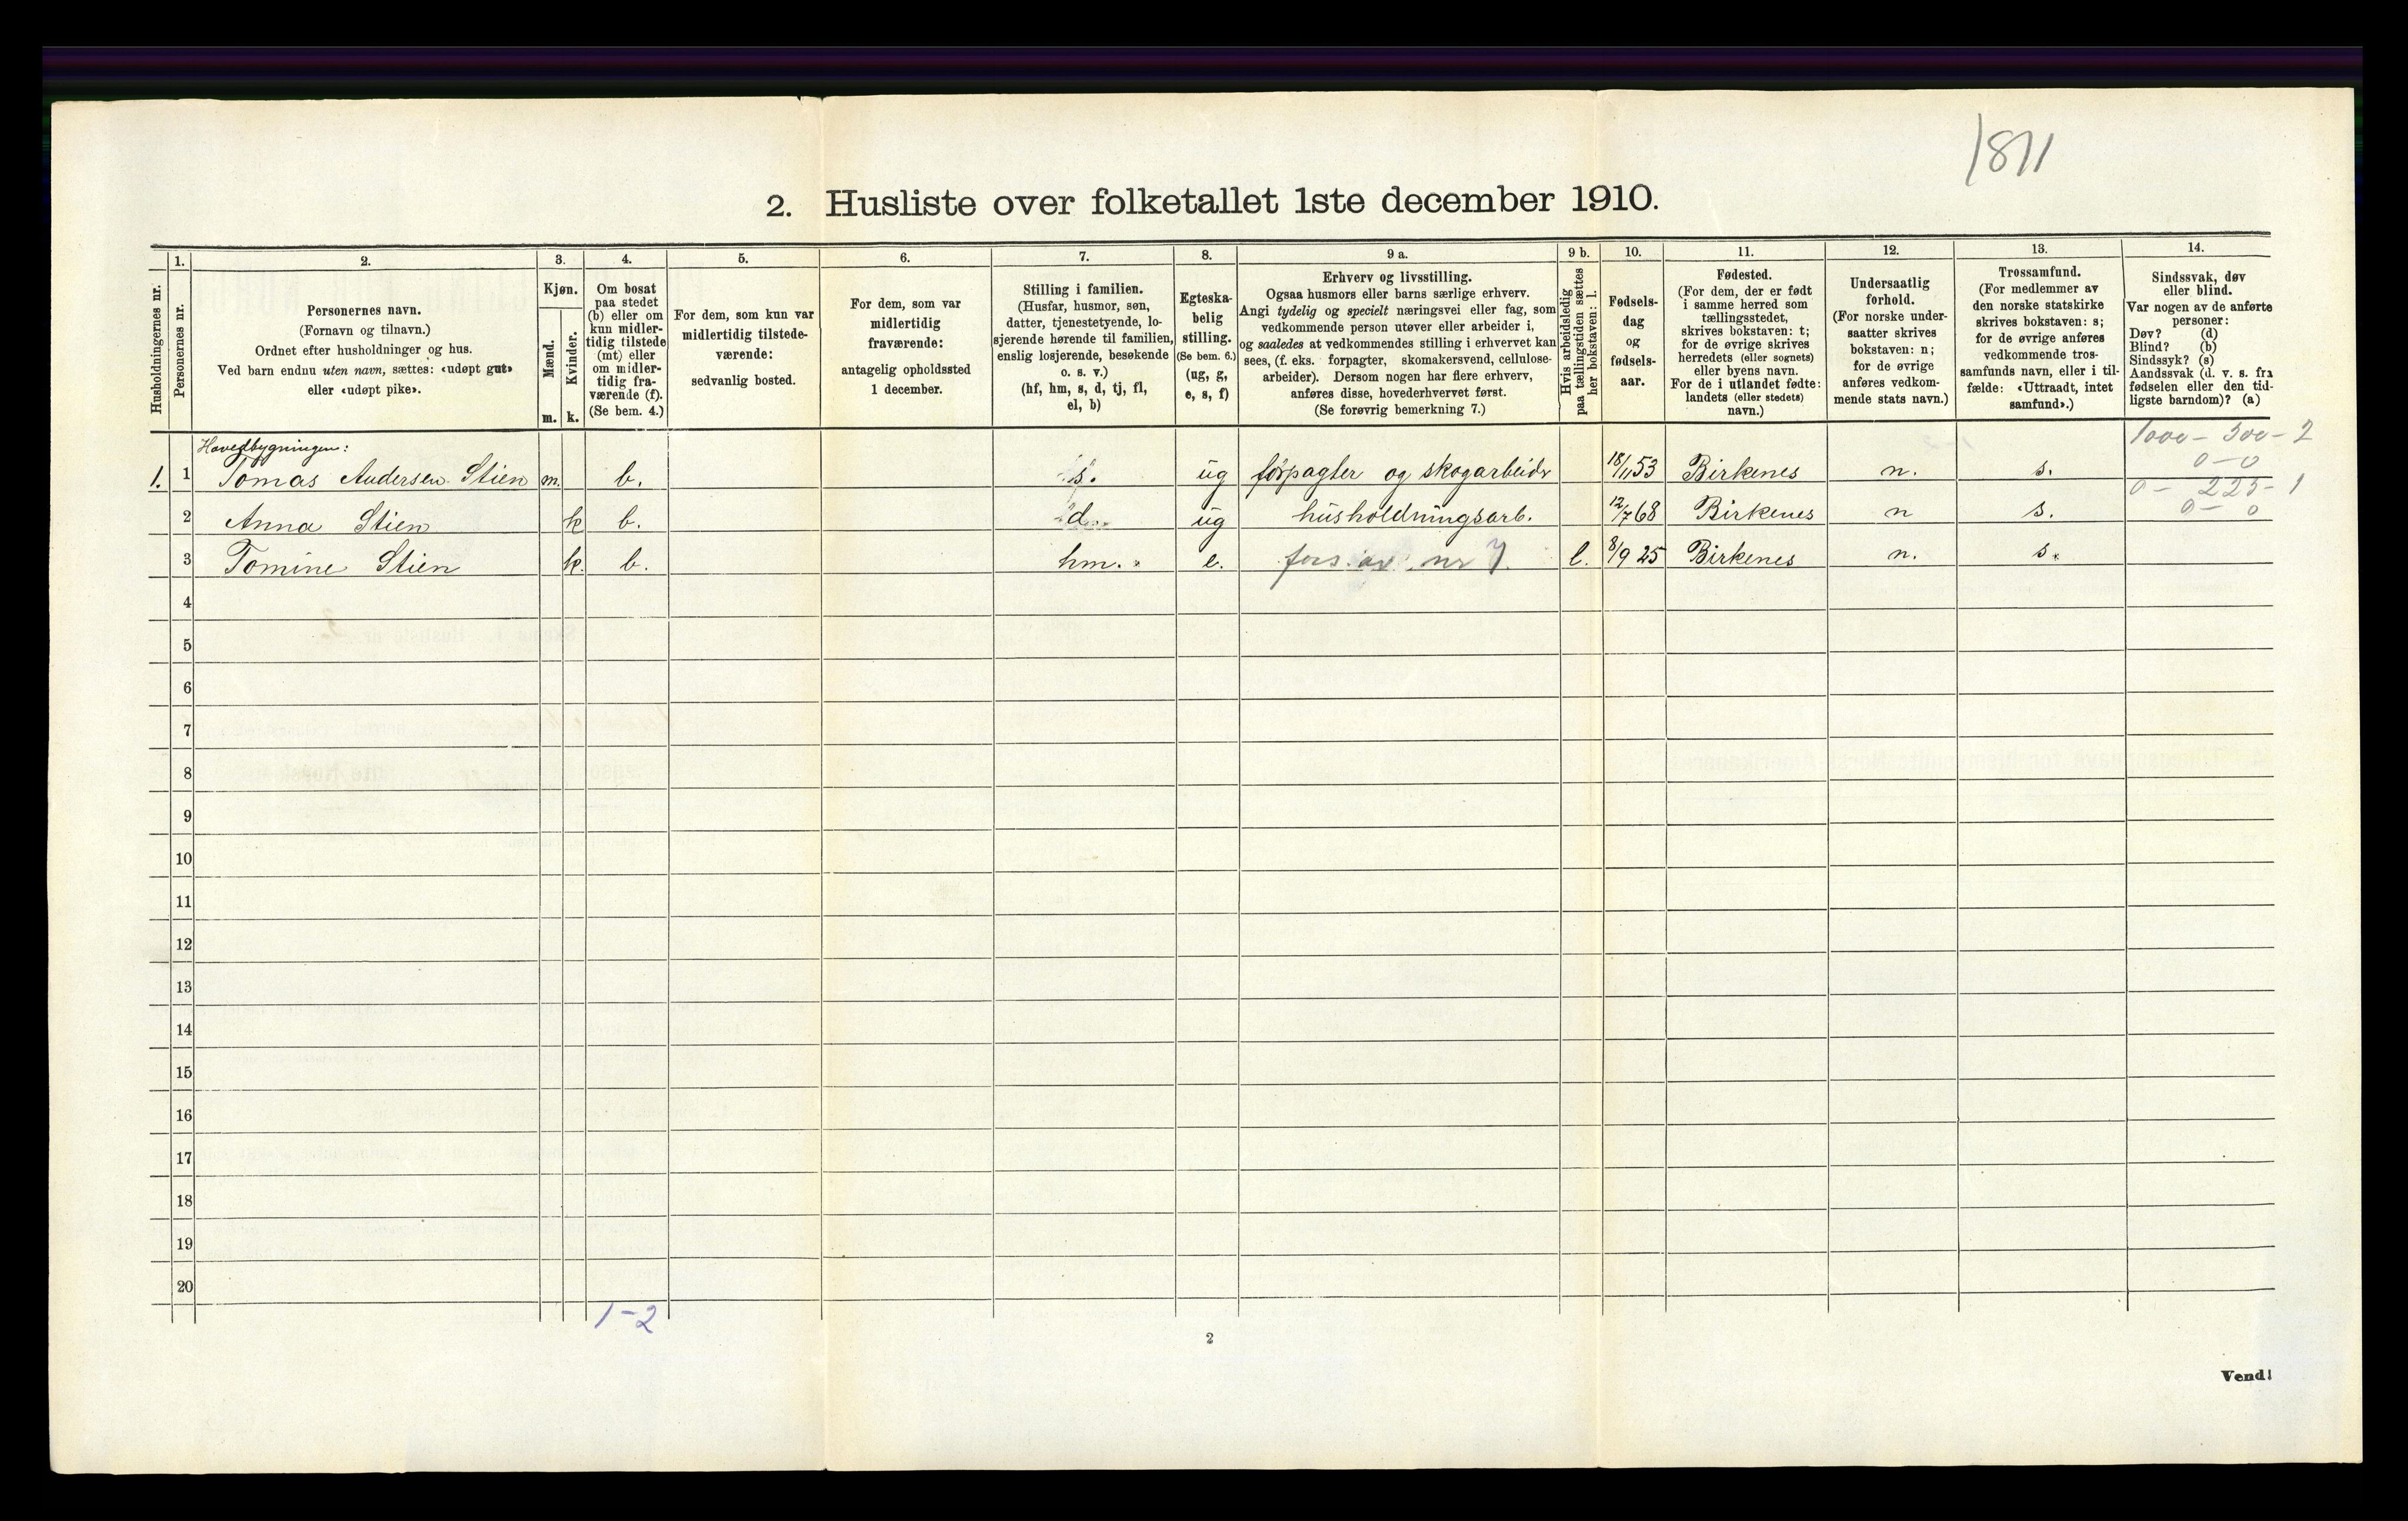 1811
2. Husliste over folketallet 1ste december 1910.
Husholdningernes nr.
1.
Personernes nr.
2.
Personernes navn.
(Fornavn og tilnavn.)
Ordnet efter husholdninger og hus.
Ved barn endnu uten navn, sættes: «udøpt gut»
eller «udøpt pike».
3.
Kjøn.
Mænd.
m.
Kvinder.
k.
4.
Om bosat
paa stedet
(b) eller om
kun midler-
tidig tilstede
(mt) eller
om midler-
tidig fra-
værende (f).
(Se bem. 4.)
5.
For dem, som kun var
midlertidig tilstede-
værende:
sedvanlig bosted.
6.
For dem, som var
midlertidig
fraværende:
antagelig opholdssted
1 december.
7.
Stilling i familien.
(Husfar, husmor, søn,
datter, tjenestetyende, lo-
sjerende hørende til familien,
enslig losjerende, besøkende
o. s. v.)
(hf, hm, s, d, tj, fl,
el, b)
8.
Egteska-
belig
stilling.
(Se bem. 6.)
(ug, g,
e, s, f)
9 a.
Erhverv og livsstilling.
Ogsaa husmors eller barns særlige erhverv.
Angi tydelig og specielt næringsvei eller fag, som
vedkommende person utøver eller arbeider i,
og saaledes at vedkommendes stilling i erhvervet kan
sees, (f. eks. forpagter, skomakersvend, cellulose-
arbeider). Dersom nogen har flere erhverv,
anføres disse, hovederhvervet først.
(Se forøvrig bemerkning 7.)
9 b.
Hvis arbeidsledig
paa tællingstiden sættes
her bokstaven: l.
10.
Fødsels-
dag
og
fødsels-
aar.
11.
Fødested.
(For dem, der er født
i samme herred som
tællingsstedet,
skrives bokstaven: t;
for de øvrige skrives
herredets (eller sognets)
eller byens navn.
For de i utlandet fødte:
landets (eller stedets)
navn.)
12.
Undersaatlig
forhold.
(For norske under-
saatter skrives
bokstaven: n;
for de øvrige
anføres vedkom-
mende stats navn.)
13.
Trossamfund.
(For medlemmer av
den norske statskirke
skrives bokstaven: s;
for de øvrige anføres
vedkommende tros-
samfunds navn, eller i til-
fælde: «Uttraadt, intet
samfund».)
14.
Sindssvak, døv
eller blind.
Var nogen av de anførte
personer:
Døv? (d)
Blind? (b)
Sindssyk? (s)
Aandssvak (d. v. s. fra
fødselen eller den tid-
ligste barndom)? (a)
Hovedbygningen:
1000 - 300 - 2
0 - 0
1. 1 Tomas Andersen Stien m. b. s. ug forpagter og skogarbeider 18/11 53 Birkenes n. s.
0 - 225 - 1
0 - 0
2 Anna Stien k b. d. ug husholdningsarb. 12/7 68 Birkenes n s.
3 Tomine Stien k. b. hm. e. fors. av nr l. 8/9 25 Birkenes n. s.
4
5
6
7
8
9
10
11
12
13
14
15
16
17
18
19
20
1-2
2
Vend!